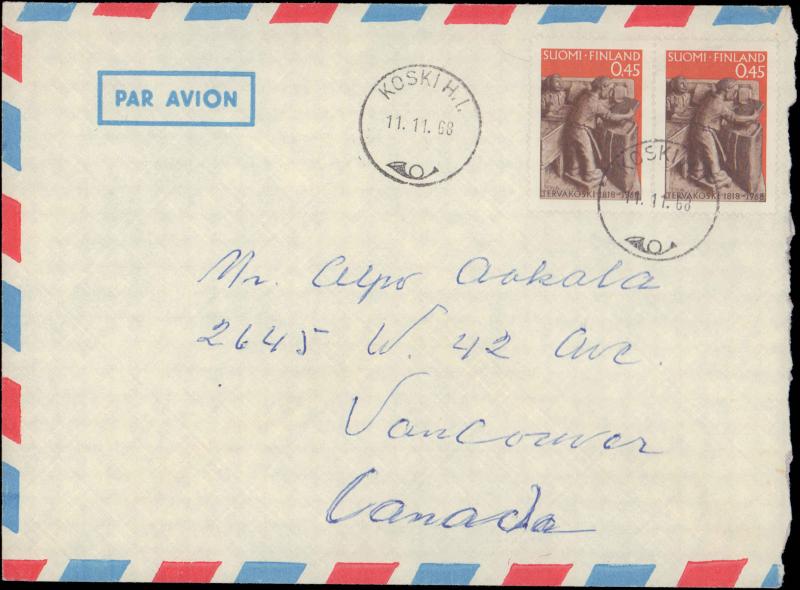 PAR AVION
KOSKI H. l.
11. 11. 68
SUOMI · FINLAND
0.45
TERVAKOSKI 1818-1968
SUOMI · FINLAND
0.45
TERVAKOSKI 1818-1968
KOSKI
11. 11. 68
Mr. Alpo Aokala
2645 W. 42 Ave.
Vancouver
Canada